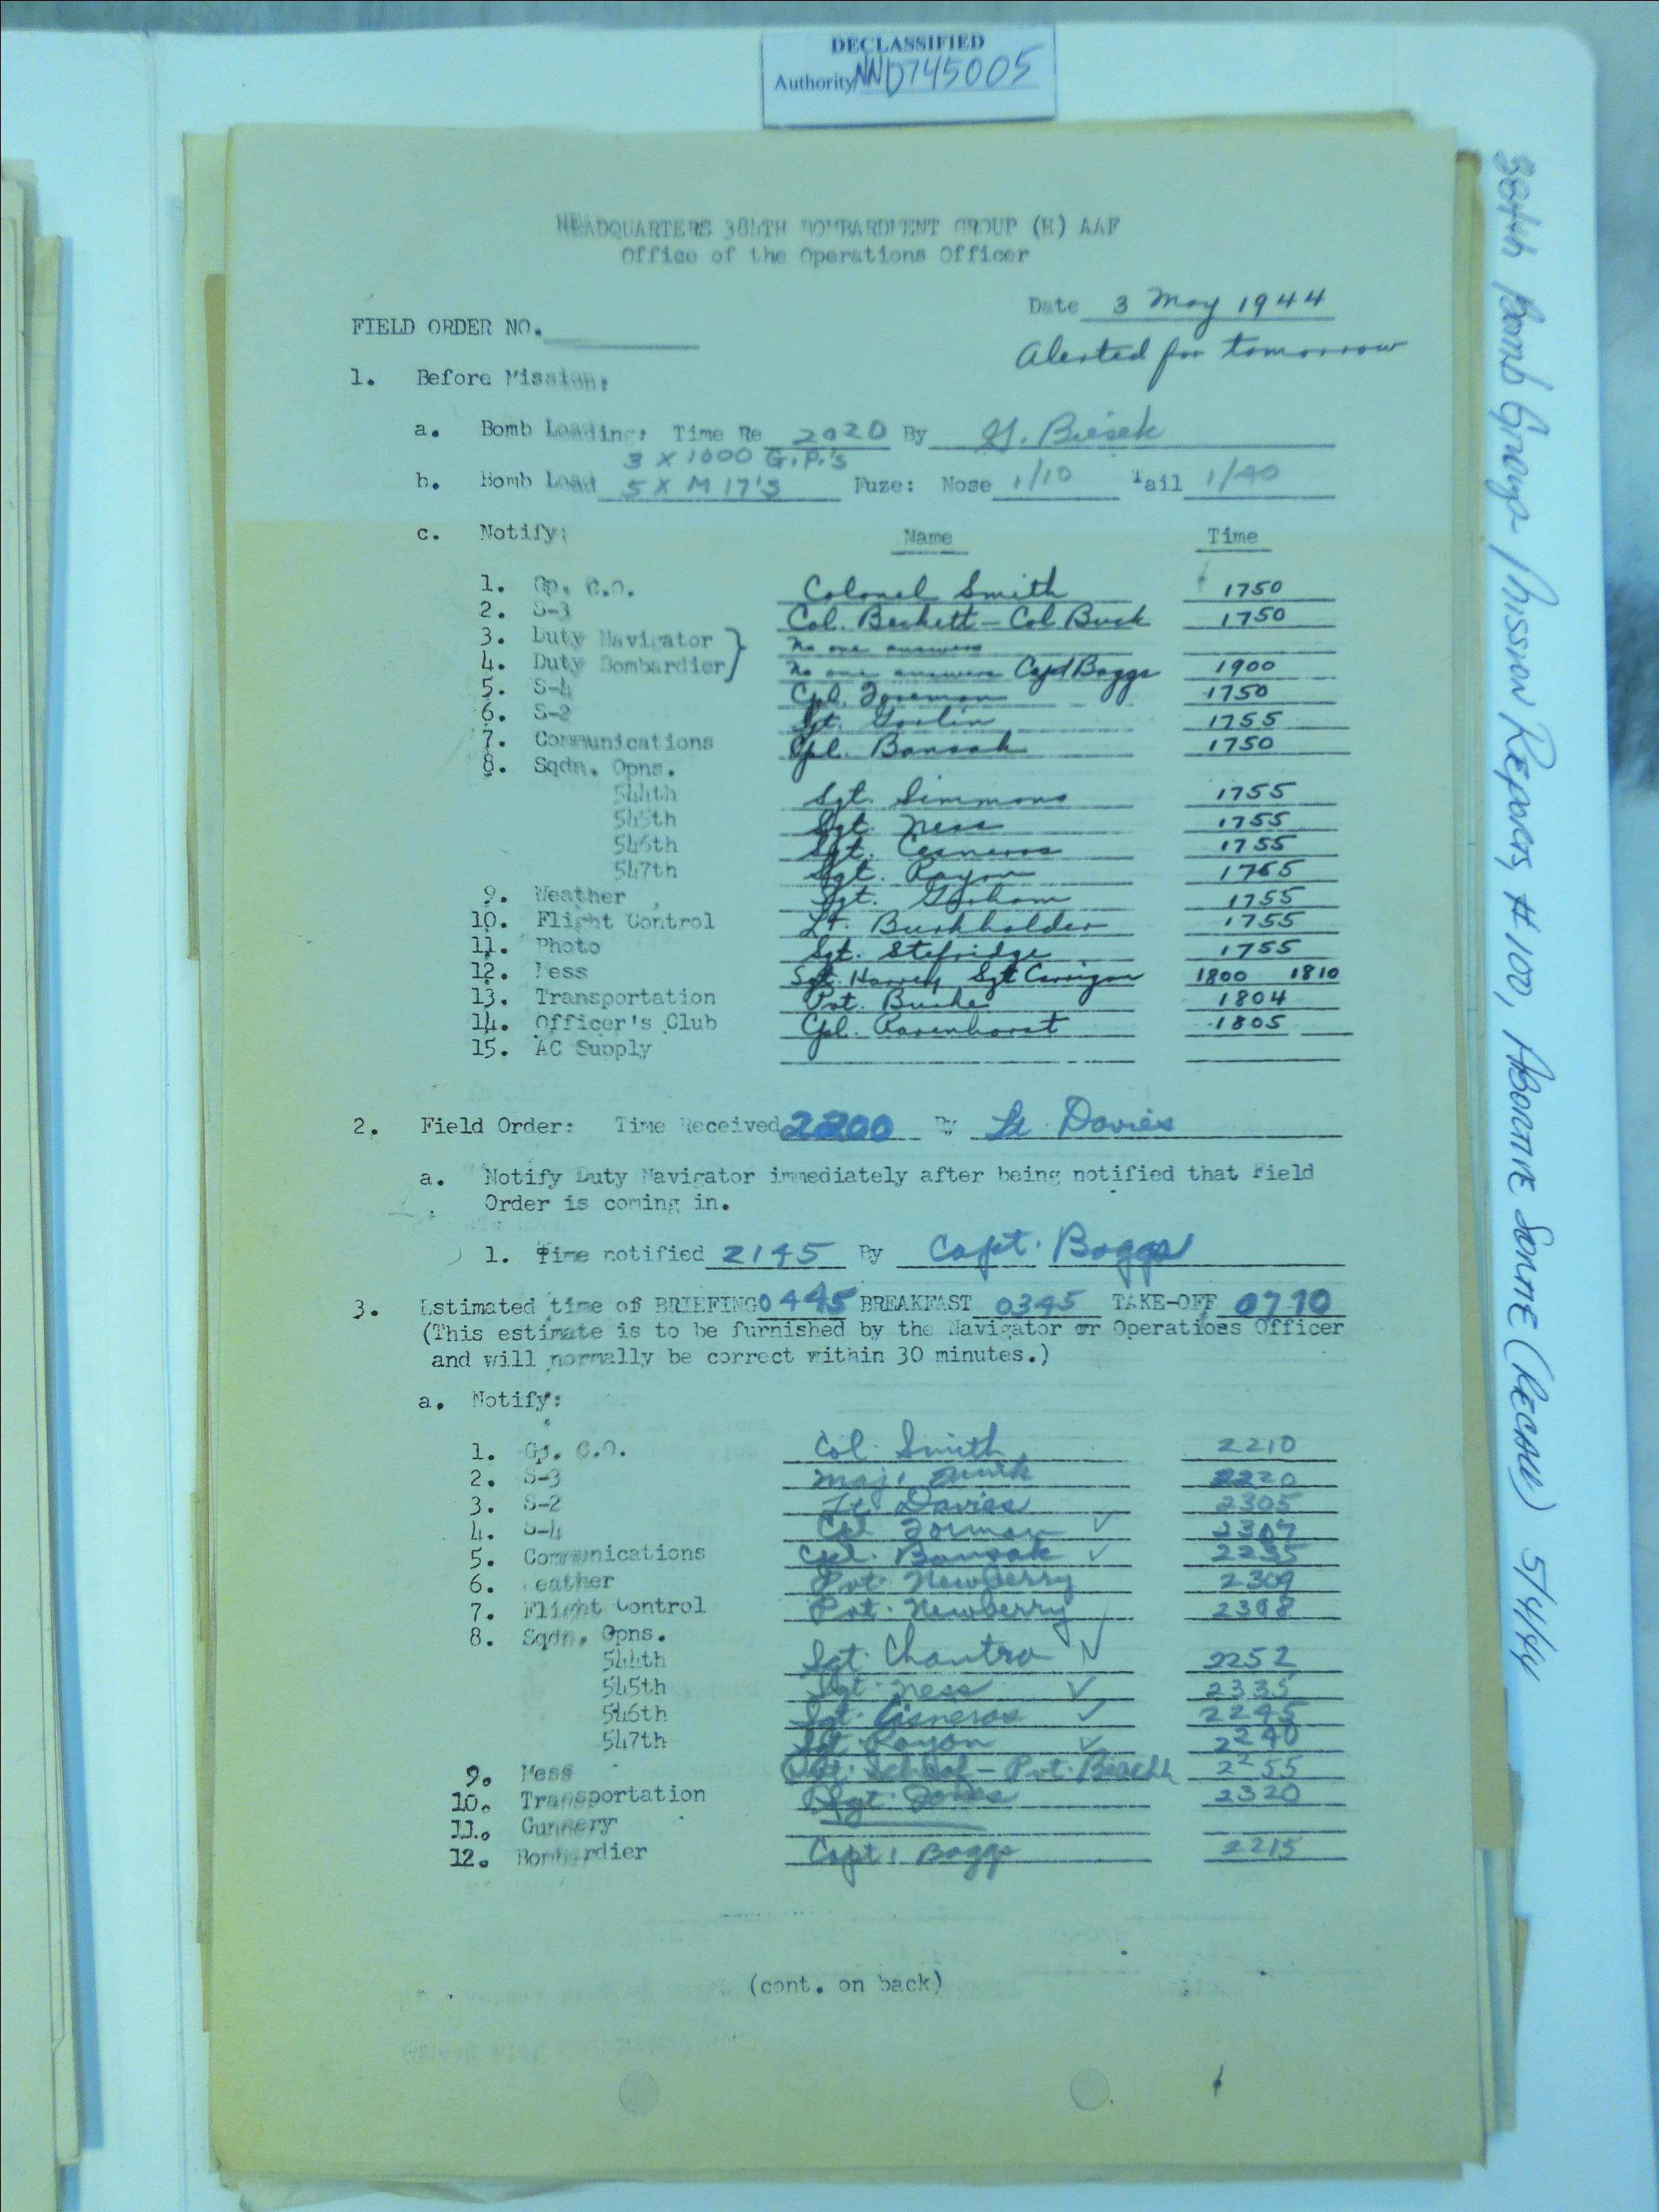 DECLASSIFIED
Authority NND745005
HEADQUARTERS 384TH BOMBARDMENT GROUP (H) AAF
Office of the Operations Officer
Date 3 May 1944
FIELD ORDER NO.
Alerted for tomorrow
1. Before Mission:
a. Bomb Loading: Time Re 2020 By
3 X 1000 G.P.'s
b. Bomb Load 5 X M 17'S Fuze: Nose 1/10 Tail 1/40
c. Notify: Name Time
1. Gp. C.O. Colonel Smith 1750
2. S-3 Col. Beckett - Col Buck 1750
3. Duty Navigator } No one answers
4. Duty Bombardier No one answers Capt Boggs 1900
5. S-4 Cpl. Foreman 1750
6. S-2 Sgt. 1755
7. Communications Cpl. Bansak 1750
8. Sqdn. Opns.
544th Sgt. Simmons 1755
545th Sgt. Ness 1755
546th Sgt. Cisneros 1755
547th Sgt. Rayon 1755
9. Weather Sgt. Gorham 1755
10. Flight Control Lt. Burkholder 1755
11. Photo Sgt. Stefridge 1755
12. Mess Sgt. Sgt Carrigan 1800 1810
13. Transportation Pvt. 1804
14. Officer's Club Cpl. Ravenhorst 1805
15. AC Supply
2. Field Order: Time Received 2200 By Lt. Davies
a. Notify Duty Navigator immediately after being notified that Field
Order is coming in.
1. Time notified 2145 By Capt. Boggs
3. Estimated time of BRIEFING 0445 BREAKFAST 0345 TAKE-OFF 0710
(This estimate is to be furnished by the Navigator or Operations Officer
and will normally be correct within 30 minutes.)
a. Notify:
1. Gp. C.O. Col. Smith 2210
2. S-3 Maj. 2220
3. S-2 Lt. Davies 2305
4. S-4 Cpl Forman ✓ 2307
5. Communications Cpl. Bansak ✓ 2235
6. Weather Pvt. Newberry 2309
7. Flight Control Pvt. Newberry 2308
8. Sqdn. Opns.
544th Sgt. Chantra ✓ 2252
545th Sgt. Ness ✓ 2335
546th Sgt. Cisneros ✓ 2245
547th Sgt. Rayon ✓ 2240
9. Mess Pvt. 2255
10. Transportation Sgt. Jones 2320
11. Gunnery
12. Bombardier Capt. Boggs 2215
(cont. on back)
384th Bomb Group Mission Reports, #100, ABORTIVE SORTIE (RECALL) 5/4/44